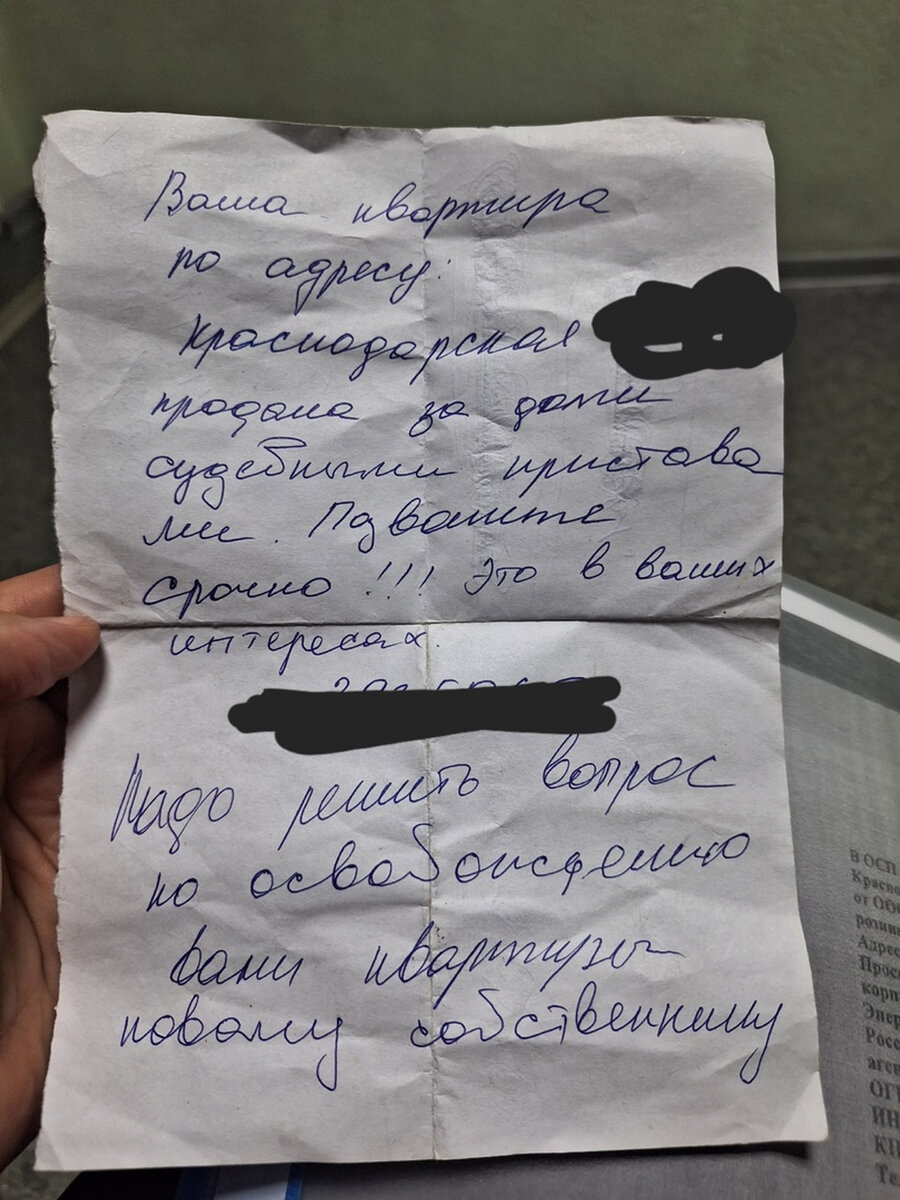 Ваша квартира
по адресу:
Краснодарская
продана за долги
судебными пристава
ми. Позвоните
срочно!!! Это в ваших
интересах
Надо решить вопрос
по освобождению
вами квартиры
новому собственнику
В ОСП
Красно
от Общ
розни
Адрес
Прос
корп
Энер
Росс
аген
ОГР
ИН
КП
Те